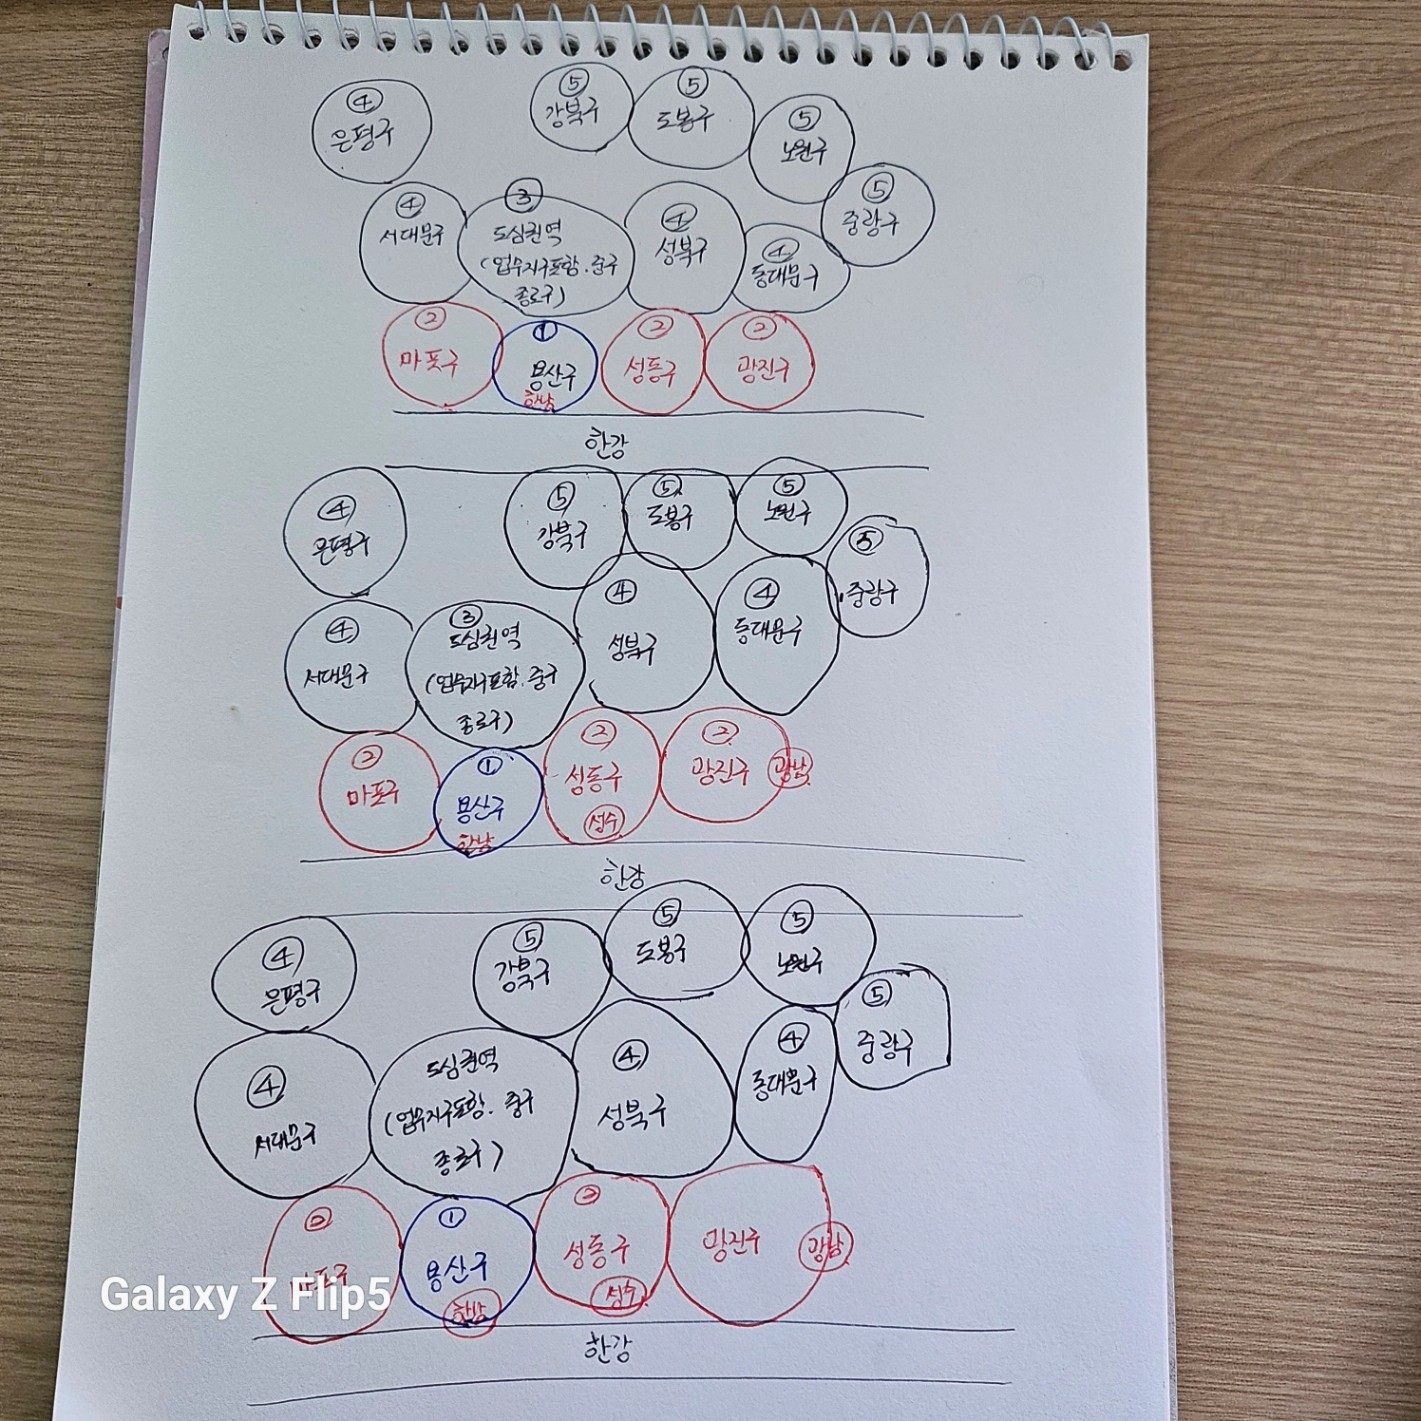 ④
은평구
⑤
강북구
⑤
도봉구
⑤
노원구
⑤
중랑구
④
서대문구
③
도심권역
(업무지구포함. 중구
종로구)
④
성북구
④
동대문구
②
마포구
①
용산구
한남
②
성동구
②
광진구
한강
④
은평구
⑤
강북구
⑤
도봉구
⑤
노원구
⑤
중랑구
④
서대문구
③
도심권역
(업무지구포함. 중구
종로구)
④
성북구
④
동대문구
②
마포구
①
용산구
한남
②
성동구
성수
②
광진구
강남
한강
④
은평구
⑤
강북구
⑤
도봉구
⑤
노원구
⑤
중랑구
④
서대문구
도심권역
(업무지구포함. 중구
종로구)
④
성북구
④
동대문구
②
마포구
①
용산구
한남
②
성동구
성수
광진구
강남
한강
Galaxy Z Flip5